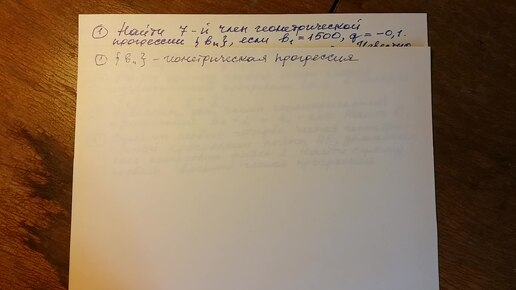 ① Найти 7-й член геометрической
прогрессии {bn}, если b1 = 1500, q = -0,1.
Известно
① {bn} - геометрическая прогрессия